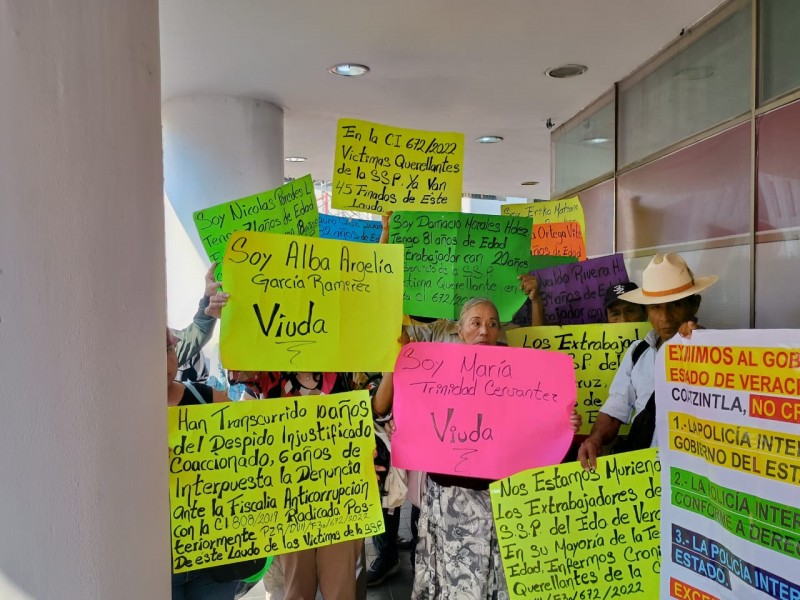 En la CI 672/2022
Victimas Querellantes
de la SSP. Ya Van
45 Finados de Este
Laudo.
Soy Nicolas Paredes L
Tengo 81 años de Edad
Soy Damacio Morales Hdez
Tengo 81 años de Edad
Extrabajador con 20 años
Servicio de la SSP
Victima Querellante en
la CI 672/2022
Soy
Ortega
años de Edad
Rivera H
años de Edad
Soy Alba Argelia
García Ramírez
Viuda
Los Extrabaja
SSP de
Soy María
Trinidad Cervantez
Viuda
Han Transcurrido 10 años
del Despido Injustificado
Coaccionado, 6 años de
Interpuesta la Denuncia
ante la Fiscalia Anticorrupción
con la CI 808/2019 Radicada Pos-
teriormente
De este Laudo de las Víctimas de la SSP
Nos Estamos Muriendo
Los Extrabajadores de
S.S.P. del Edo de Vera
En Su Mayoría de la Te
Edad, Enfermos Croni
Querellantes de la C
EXIJIMOS AL GOB
ESTADO DE VERAC
COATZINTLA, NO CR
1.-LA POLICÍA INTER
GOBIERNO DEL ESTA
2.-LA POLICÍA INTE
CONFORME A DEREC
3.-LA POLICÍA INTE
ESTADO.